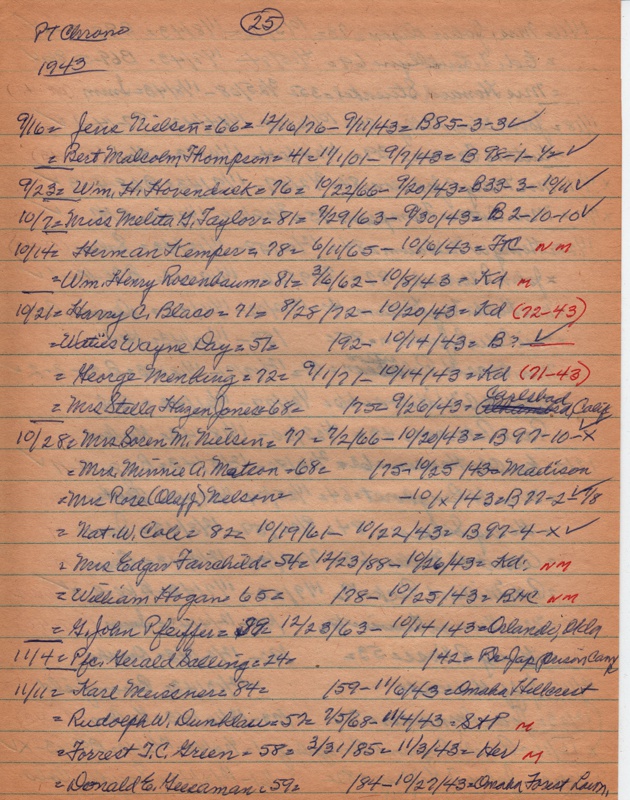 25
PT Chrono
1943
9/16= Jens Nielsen=66= 12/16/76- 9/11/43= B85-3-3✓
= Bert Malcolm Thompson= 41= 11/1/01- 9/7/43= B 98-1-½=✓
9/23= Wm. H. Hovendick= 76= 10/22/66- 9/20/43= B33-3-10/11✓
10/7= Miss Melita G. Taylor= 81= 7/29/63- 9/30/43= B 2-10-10✓
10/14= Herman Kemper= 78= 6/11/65- 10/6/43= FtC NM
=Wm. Henry Rosenbaum= 81= 3/6/62- 10/8/43= Kd M
10/21= Harry C. Blaco= 71= 8/28/72- 10/20/43= Kd (72-43)
= Wayne Day= 51= 192- 10/14/43= B?✓
= George Menking= 72= 9/1/71- 10/14/43= Kd (71-43)
= Mrs Stella Hazen Jones=68= 175= 9/26/43= Carlsbad, Calif
10/28= Mrs Soren M. Nielsen= 77= 7/2/66- 10/20/43= B97-10-X
= Mrs. Minnie A. Matson=68= 175-10/25/43= Madison
=Mrs Rose (Olaff) Nelson= -10/x/43= B77-2-7/8
= Nat. W. Cole= 82= 10/19/61- 10/22/43= B97-4-x✓
= Mrs Edgar Fairchild= 54= 12/23/88- 10/26/43= Kd. NM
= William Hogan= 65= 178- 10/25/43= BHC NM
= G. John Pfeiffer= 79= 12/28/63- 10/14/43= Okla
11/4= Pfc. Gerald Balling= 24= 142= Jap prison Camp
11/11= Karl Meissner= 84= 159-11/6/43=Omaha Hillcrest
= Rudolph W. Dunklau= 57= 7/5/68- 11/4/43= StP M
=Forrest T.C. Green= 58= 3/31/85= 11/3/43= Her M
= Donald E. Geesaman= 59= 184-10/27/43=Omaha Forest Lawn,